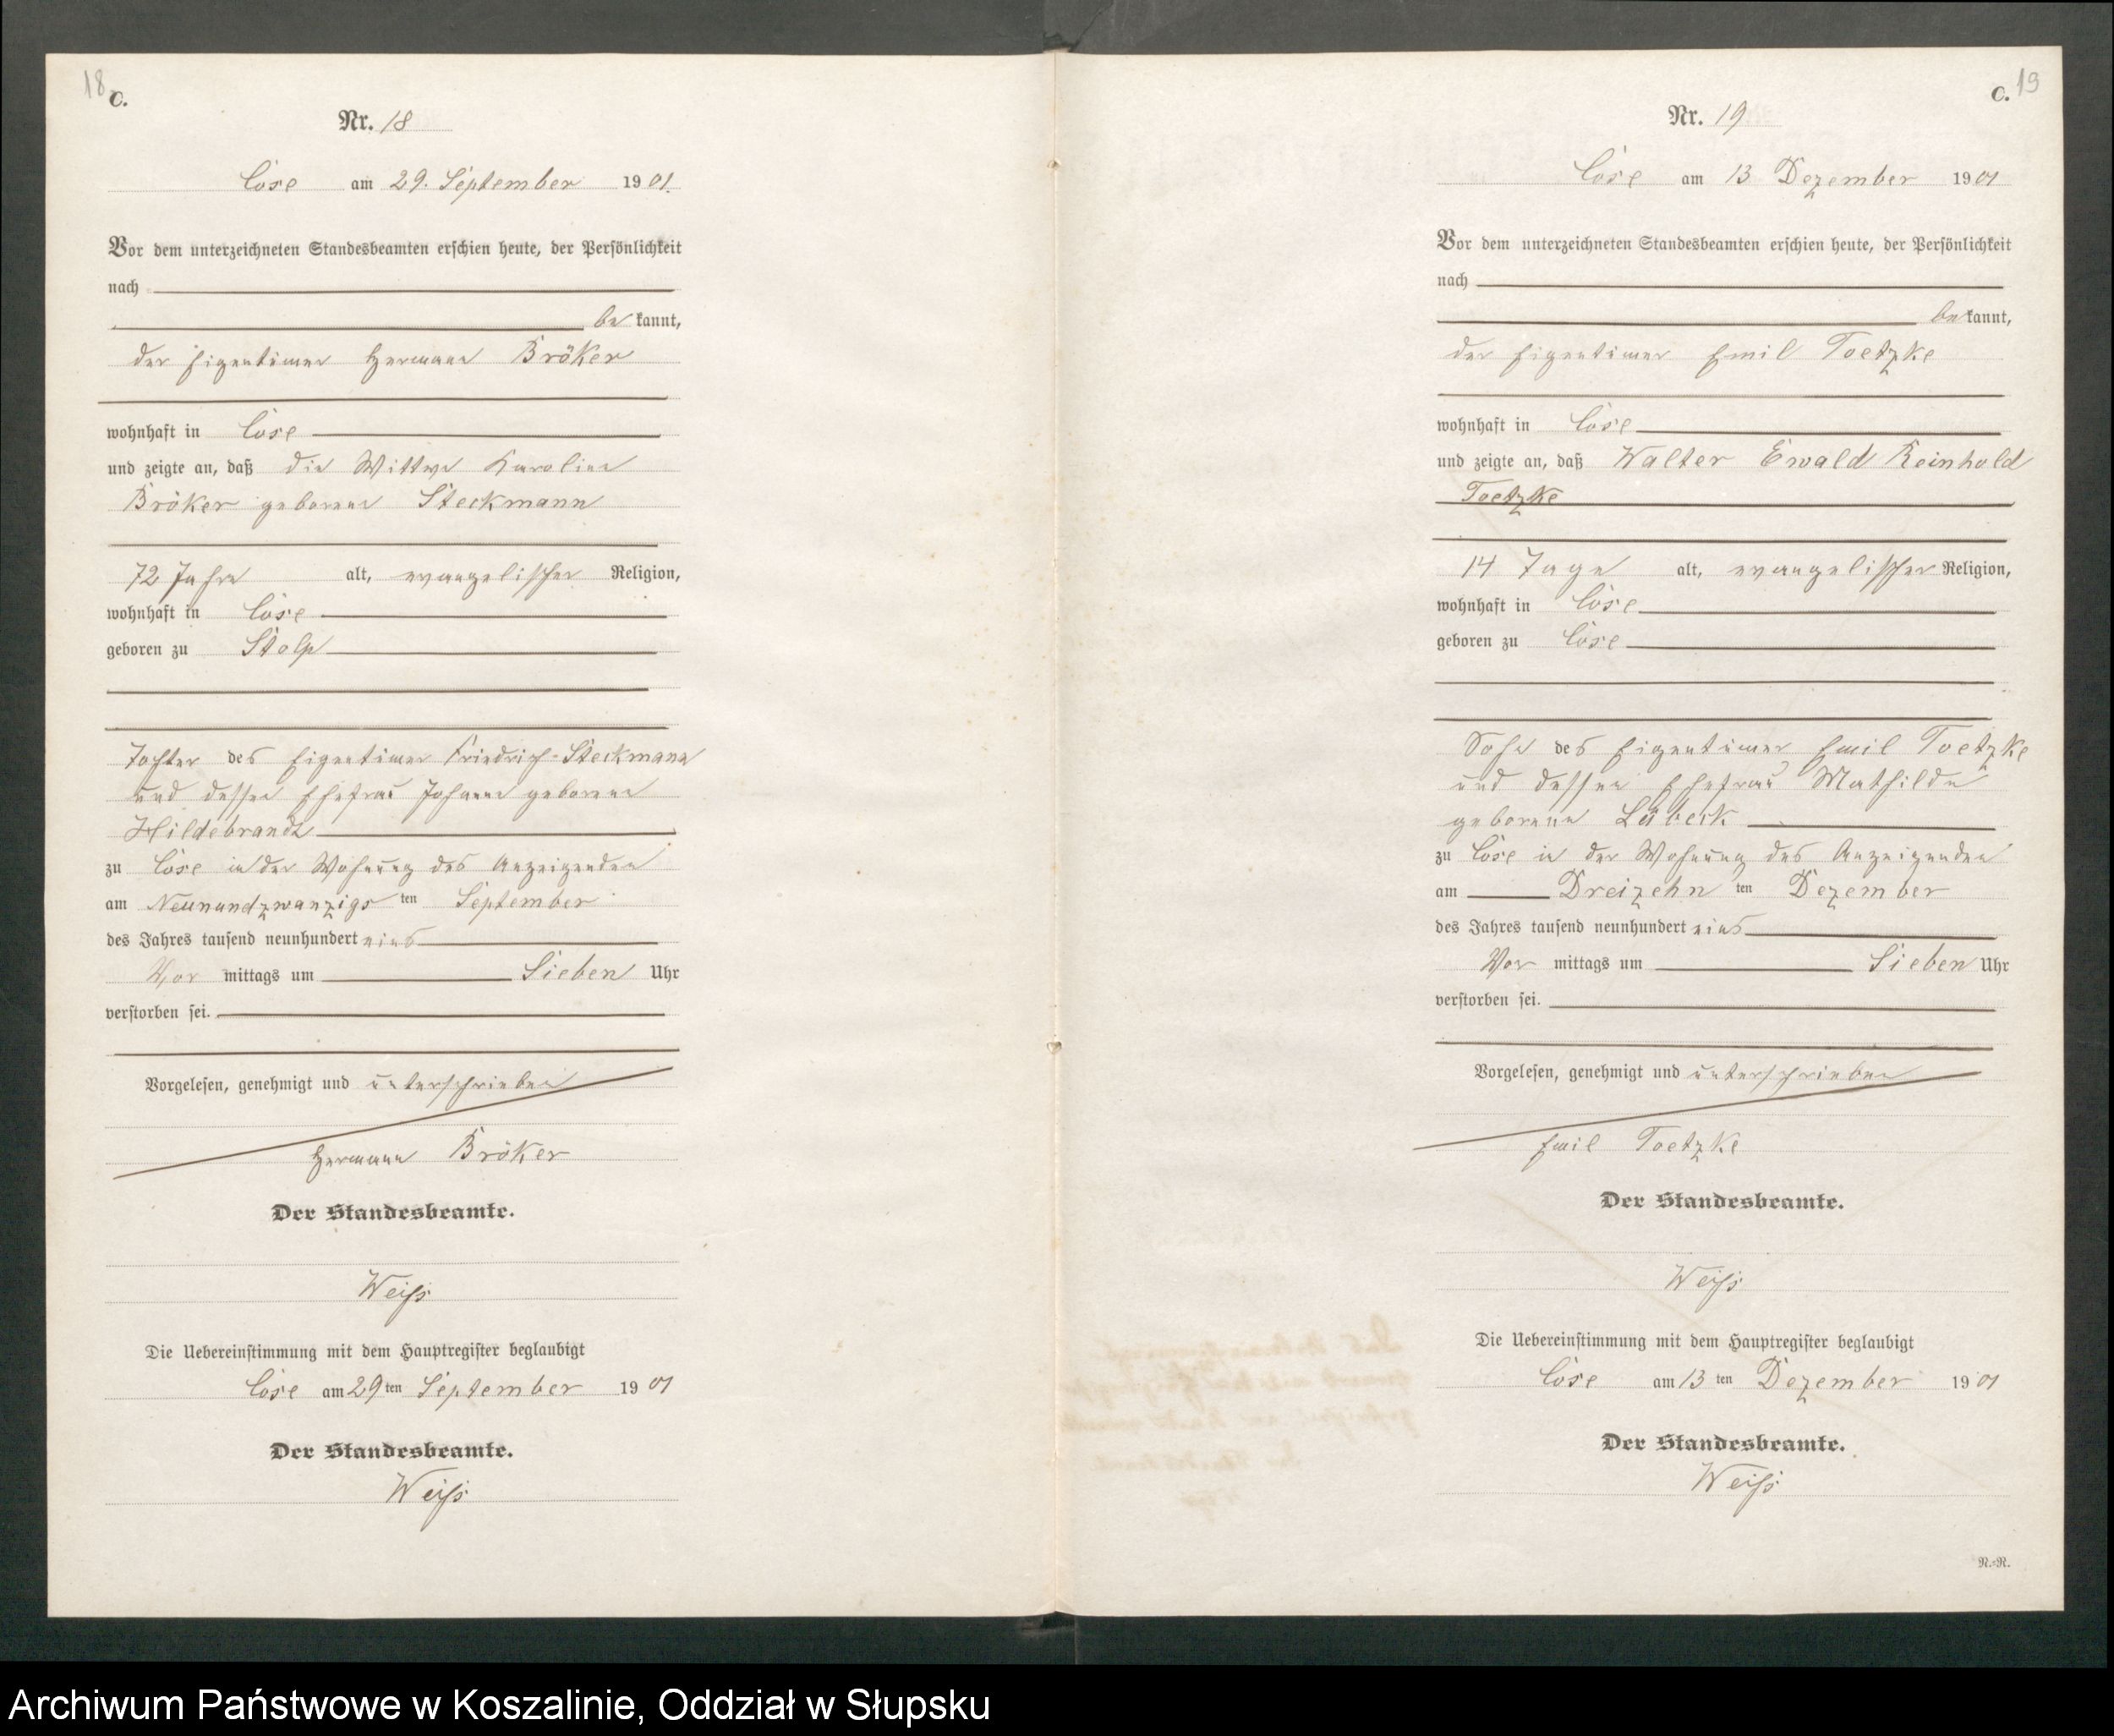 18
C.
Nr. 18
Cöse am 29. September 1901.
Vor dem unterzeichneten Standesbeamten erschien heute, der Persönlichkeit
nach
be kannt,
der Eigentümer Hermann Bröker
wohnhaft in Cöse
und zeigte an, daß die Wittwe Karoline
Bröker geborene Steckmann
72 Jahre alt, evangelischer Religion,
wohnhaft in Cöse
geboren zu Stolp
Tochter des Eigentümer Friedrich Steckmann
und dessen Ehefrau Johanne geborene
Hildebrandt
zu Cöse in der Wohnung des Anzeigenden
am Neunundzwanzigsten September
des Jahres tausend neunhundert eins
Vor mittags um Sieben Uhr
verstorben sei.
Vorgelesen, genehmigt und unterschrieben
Hermann Bröker
Der Standesbeamte.
Weiß
Die Uebereinstimmung mit dem Hauptregister beglaubigt
Cöse am 29ten September 1901
Der Standesbeamte.
Weiß
C. 19
Nr. 19
Cöse am 13 Dezember 1901
Vor dem unterzeichneten Standesbeamten erschien heute, der Persönlichkeit
nach
be kannt,
der Eigentümer Emil Toetzke
wohnhaft in Cöse
und zeigte an, daß Walter Ewald Reinhold
Toetzke
14 Tage alt, evangelischer Religion,
wohnhaft in Cöse
geboren zu Cöse
Sohn des Eigentümer Emil Toetzke
und dessen Ehefrau Mathilde
geborene Lübeck
zu Cöse in der Wohnung des Anzeigenden
am Dreizehn ten Dezember
des Jahres tausend neunhundert eins
Vor mittags um Sieben Uhr
verstorben sei.
Vorgelesen, genehmigt und unterschrieben
Emil Toetzke
Der Standesbeamte.
Weiß
Die Uebereinstimmung mit dem Hauptregister beglaubigt
Cöse am 13 ten Dezember 1901
Der Standesbeamte.
Weiß
N.-N.
Archiwum Państwowe w Koszalinie, Oddział w Słupsku